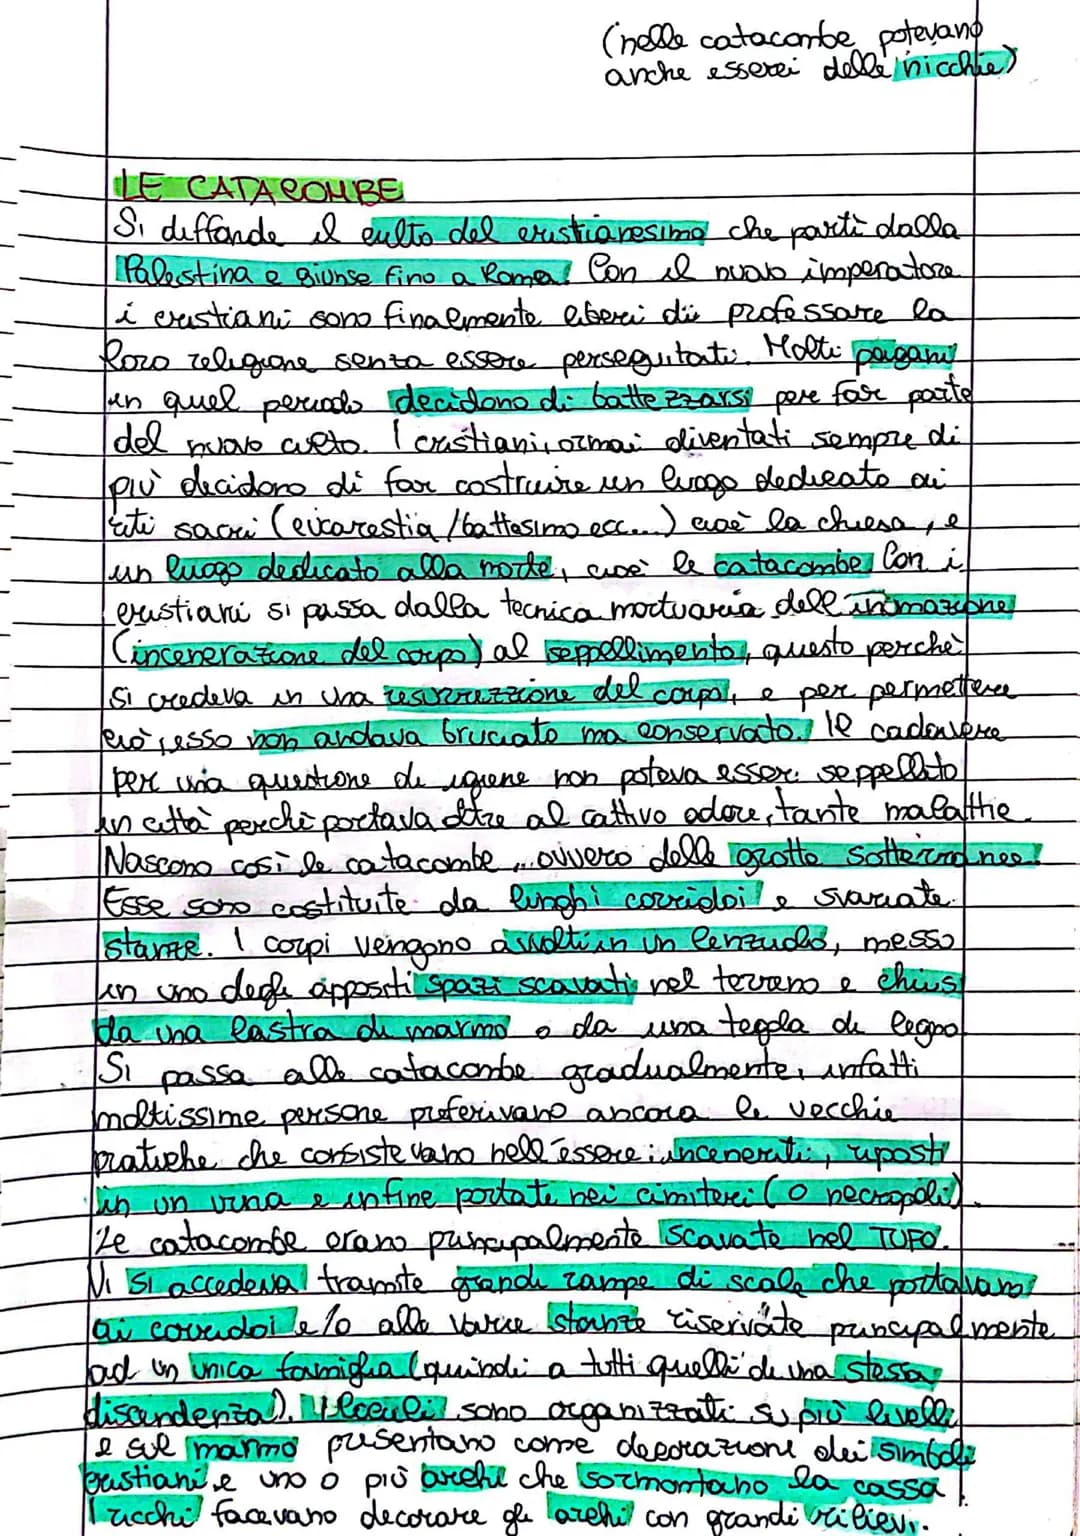 (nelle catacombe potevano
anche esserci delle nicchie)
LE CATACOMBE
Si diffonde il culto del cristianesimo che partì dalla
Palestina e giunse fino a Roma. Con il nuovo imperatore
i cristiani sono finalmente liberi di professare la
loro religione senza essere perseguitati. Molti pagani
in quel periodo decidono di battezzarsi per far parte
del nuovo culto. I cristiani, ormai diventati sempre di
più decidono di far costruire un luogo dedicato ai
riti sacri (eucarestia/battesimo ecc...) cioè la chiesa, e
un luogo dedicato alla morte, cioè le catacombe. Con i
cristiani si passa dalla tecnica mortuaria dell'inumazione
(incenerazione del corpo) al seppellimento, questo perchè
si credeva in una resurrezione del corpo, e per permettere
ciò, esso non andava bruciato ma conservato. Il cadavere
per una questione di igiene non poteva esser seppellito
in città perchè portava oltre al cattivo odore, tante malattie.
Nascono così le catacombe, ovvero delle grotte sotterranee.
Esse sono costituite da lunghi corridoi e svariate
stanze. I corpi vengono avvolti in un lenzuolo, messo
in uno degli appositi spazi scavati nel terreno e chiusi
da una lastra di marmo o da una tegola di legno.
Si passa alle catacombe gradualmente, infatti
moltissime persone preferivano ancora le vecchie
pratiche che consistevano nell'essere inceneriti, riposti
in un urna e infine portate nei cimiteri (o necropoli).
Le catacombe erano principalmente scavate nel TUFO.
Vi si accedeva tramite grandi rampe di scale che portavano
ai corridoi e/o alle varie stanze riservate principalmente
ad un unica famiglia (quindi a tutti quelli di una stessa
discendenza). I loculi sono organizzati su più livelli
e sul marmo presentano come decorazione dei simboli
cristiani e uno o più archi che sormontano la cassa.
I ricchi facevano decorare gli archi con grandi rilievi.